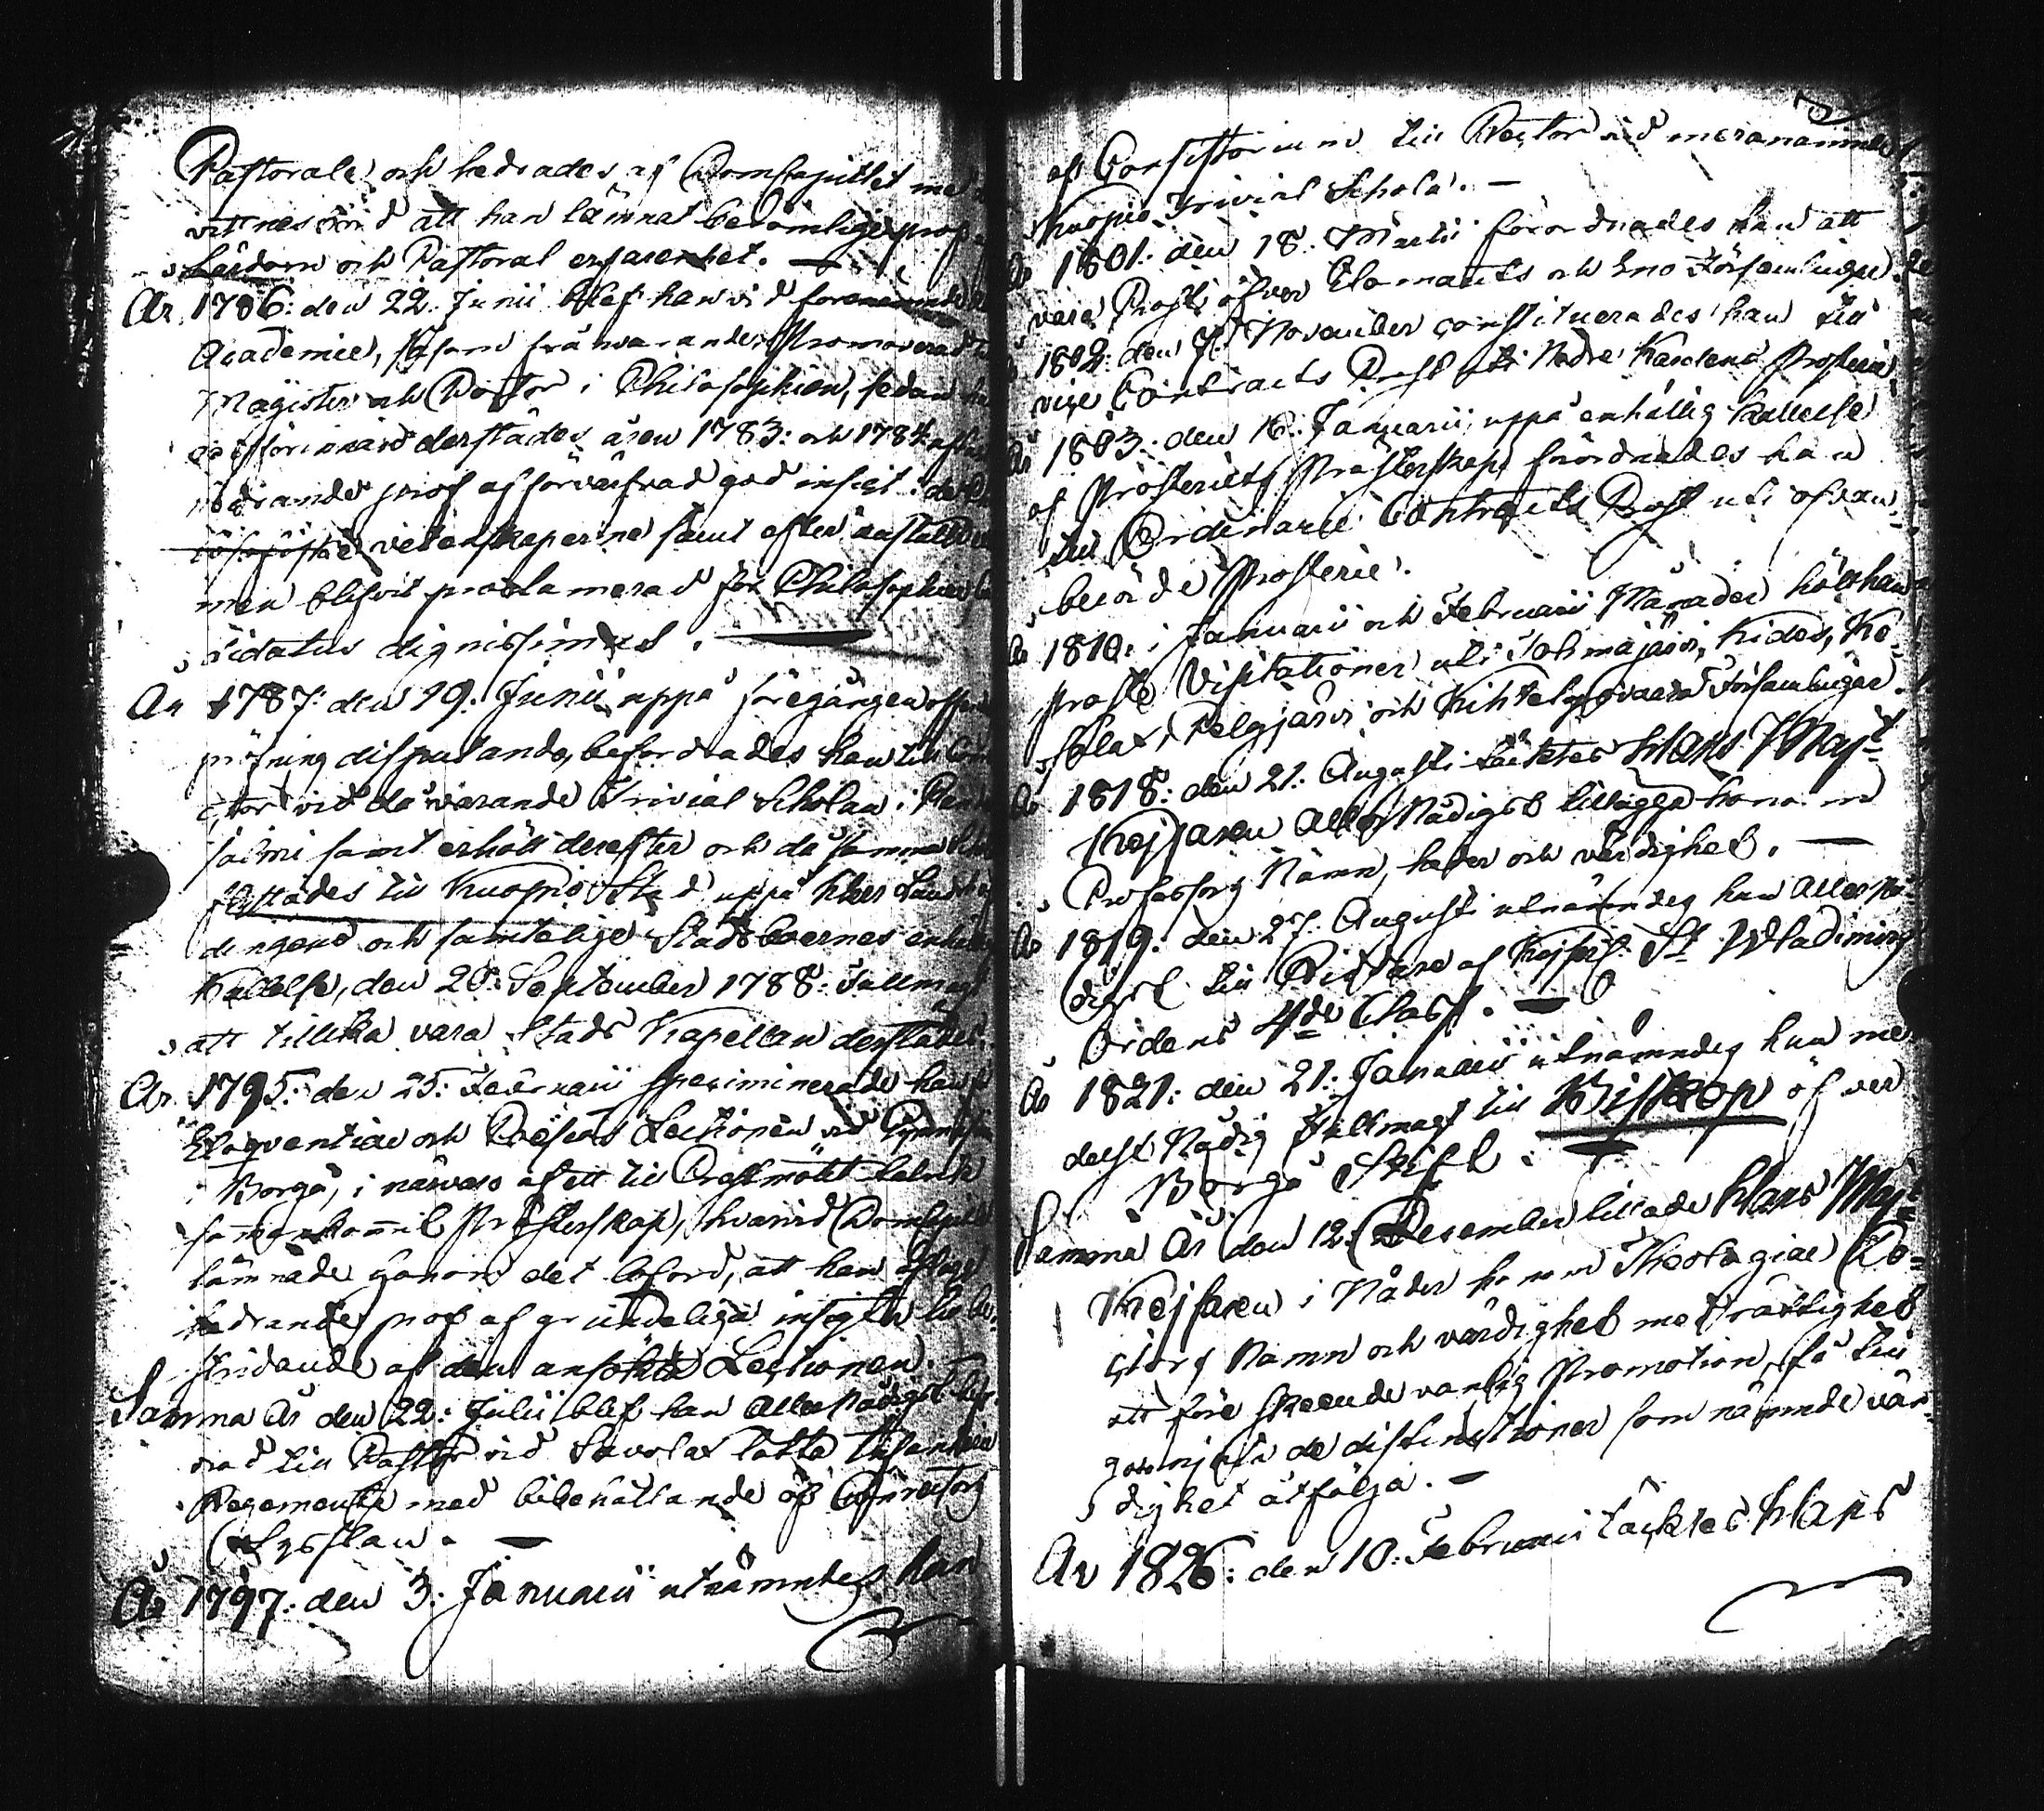 Pastorale och hedrades af Domcapitlet
vittnesbörd att han lämnat berömlige prof
Lärdom och Pastoral erfarenhet. —
År 1786: den 22. Junii blef han vid förenämnde
Academie, såsom frånvarande, Promoverad
Magister och Doctor i Philosophien, sedan
förinnan derstädes åren 1783: och 1784
hedrande prof af förvärfvad god insigt i de
vetenskaperne samt efter anstald
men blifvit proclamerad för Philosophiæ
didatus dignissimus. —
År 1787: den 19. Junii uppå föregången
pröfning disputando, befordrades han till
ctor vid då varande Trivial Scholan i
salmi samt erhöll derefter och då samma
flyttades till Kuopio Stad uppå Herr Landshöf
dingens och samtelige Stadsboernes enhällige
Kallelse, den 20. September 1788: fullmagt
att tillika vara Stads Kapellan derstädes.
År 1795: den 25: Februarii speciminerade han
Eloquentiæ och Poëseos Lectionen vid Gymnasium
i Borgå, i närvaro af ett till Prestmötet talrik
sammankommit Presterskap, hvarvid Domcapitlet
lämnade honom det loford, att han aflagt
hedrande prof af grundeliga insigter till be-
stridande af den ansökta Lectionen.
Samma År den 22: Julii blef han Allernådigst
rad till Pastor vid Savolax Lätta Infanterie
Regemente med bibehållande af Conrectors
Sysslan. —
År 1797: den 3: Januarii utnämndes han
af Consistorium till Rector vid meranämnde
Kuopio Trivial Schola. —
År 1801: den 18. Martii förordnades han att
vara Prost öfver Elomants och Eno Församlingar.
1802: den 7. November constituerades han till
vice Contracts Prost uti Nedre Karelens Prosterie
År 1803: den 16. Januarii, uppå enhällig kallelse
af Prosteriets Presterskap, förordnades han
till Ordinarie Contracts Prost uti ofvan-
berörde Prosterie.
År 1810: i Januarii och Februarii Månader höll han
Proste Visitationer uti Tohmajärvi, Kides, Ke-
sälax, Pelgjärvi och Kihtelysvaara Församlingar.
År 1818: den 21. Augusti täcktes Hans Majt
Kejsaren Aller Nådigst tillägga honom
Professors Namn, heder och värdighet. —
År 1819: den 27. Augusti utnämndes han Allernå-
digst till Riddare af Kejserl. St Wladimirs
Ordens 4de Class. —
År 1821: den 21. Januarii utnämndes han me-
delst Nådig fullmagt till Biskop öfver
Borgå Stift.
Samma År den 12. December tillade Hans Majt
Kejsaren i Nåder honom Theologiae Do-
ctors Namn och värdighet med rättighet
att före skeende vanlig Promotion, få till
godo njuta de distinctioner som nämnde vär-
dighet åtfölja. —
År 1826: den 10. Februarii täcktes Hans